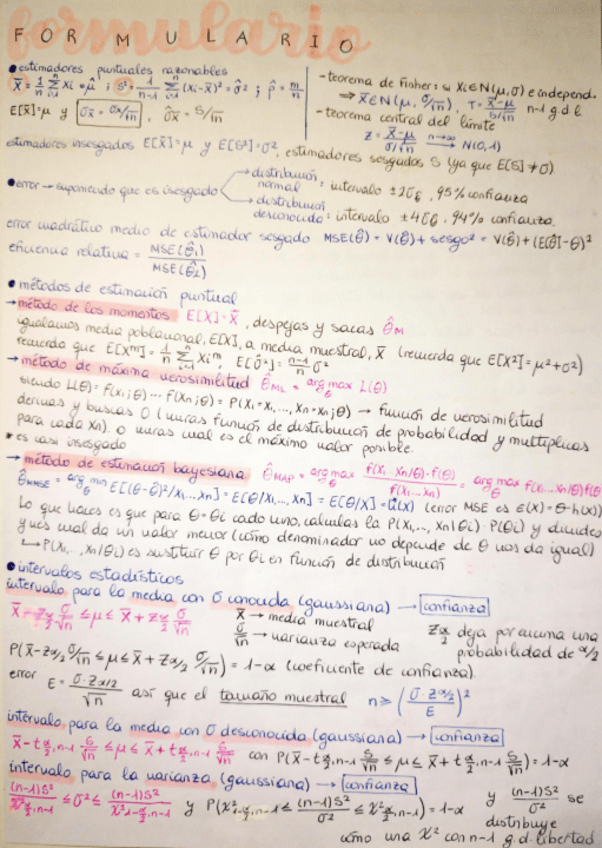 FORMULARIO
• estimadores puntuales razonables
X̄ = 1/n Σⁿᵢ₌₁ Xi = μ̂ ; S² = 1/(n-1) Σⁿᵢ₌₁ (Xi - X̄)² = σ̂² ; p̂ = m/n
E[X̄] = μ y σx̄ = σx/√n , σ̂x̄ = S/√n
- teorema de Fisher: si Xi∈N(μ,σ) e independ.
⇒ X̄∈N(μ, σ/√n), T = (X̄-μ)/(S/√n) n-1 g.d.l
- teorema central del límite
Z = (X̄-μ)/(σ/√n) n→∞ → N(0,1)
estimadores insesgados E[X̄]=μ y E[S²]=σ², estimadores sesgados S (ya que E[S]≠σ)
• error → suponiendo que es insesgado
→ distribución normal: intervalo ±2σθ̂, 95% confianza
→ distribución desconocida: intervalo ±4σθ̂, 94% confianza.
error cuadrático medio de estimador sesgado MSE(θ̂) = V(θ̂) + sesgo² = V(θ̂) + (E[θ̂]-θ)²
eficiencia relativa = MSE(θ̂₁)/MSE(θ̂₂)
• métodos de estimación puntual
→ método de los momentos E[X] = X̄, despejas y sacas θ̂M
igualamos media poblacional, E[X], a media muestral, X̄ (recuerda que E[X²] = μ²+σ²)
recuerda que E[Xᵐ] = 1/n Σⁿᵢ₌₁ Xiᵐ, E[σ̂²] = (n-1)/n σ²
→ método de máxima verosimilitud θ̂ML = arg max θ L(θ)
siendo L(θ) = f(x₁;θ)··· f(xn;θ) = P(X₁=x₁,..., Xn=xn;θ) → función de verosimilitud
derivas y buscas 0 (miras función de distribución de probabilidad y multiplicas
para cada xn). o miras cual es el máximo valor posible.
* es casi insesgado
→ método de estimación bayesiana θ̂MAP = arg max θ f(x₁...xn/θ)·f(θ) / f(x₁...xn) = arg max θ f(x₁...xn/θ)f(θ)
θ̂MMSE = arg min θ E[(θ-θ̂)²/x₁,...,xn] = E[θ/x₁,...,xn] = E[θ/X] = (x) (error MSE es ε(x) = θ-h(x))
Lo que haces es que para θ=θi cada uno, calculas la P(x₁,...,xn|θi)·P(θi) y divides
y ves cual da un valor menor (como denominador no depende de θ nos da igual)
↳ P(x₁,...,xn|θi) es sustituir θ por θi en función de distribución
• intervalos estadísticos
intervalo para la media con σ conocida (gaussiana) → confianza
X̄ - zα/2 σ/√n ≤ μ ≤ X̄ + zα/2 σ/√n
X̄ → media muestral
σ/√n → varianza esperada
zα/2 deja por encima una
probabilidad de α/2
P(X̄ - zα/2 σ/√n ≤ μ ≤ X̄ + zα/2 σ/√n) = 1-α (coeficiente de confianza).
error E = σ·zα/2 / √n así que el tamaño muestral n ≥ (σ·zα/2 / E)²
intervalo para la media con σ desconocida (gaussiana) → confianza
X̄ - t α/2,n-1 S/√n ≤ μ ≤ X̄ + t α/2,n-1 S/√n con P(X̄ - t α/2,n-1 S/√n ≤ μ ≤ X̄ + t α/2,n-1 S/√n) = 1-α
intervalo para la varianza (gaussiana) → confianza
(n-1)S²/χ² α/2,n-1 ≤ σ² ≤ (n-1)S²/χ² 1-α/2,n-1 y P(χ² 1-α/2,n-1 ≤ (n-1)S²/σ² ≤ χ² α/2,n-1) = 1-α y (n-1)S²/σ² se
distribuye
como una χ² con n-1 g.d.libertad